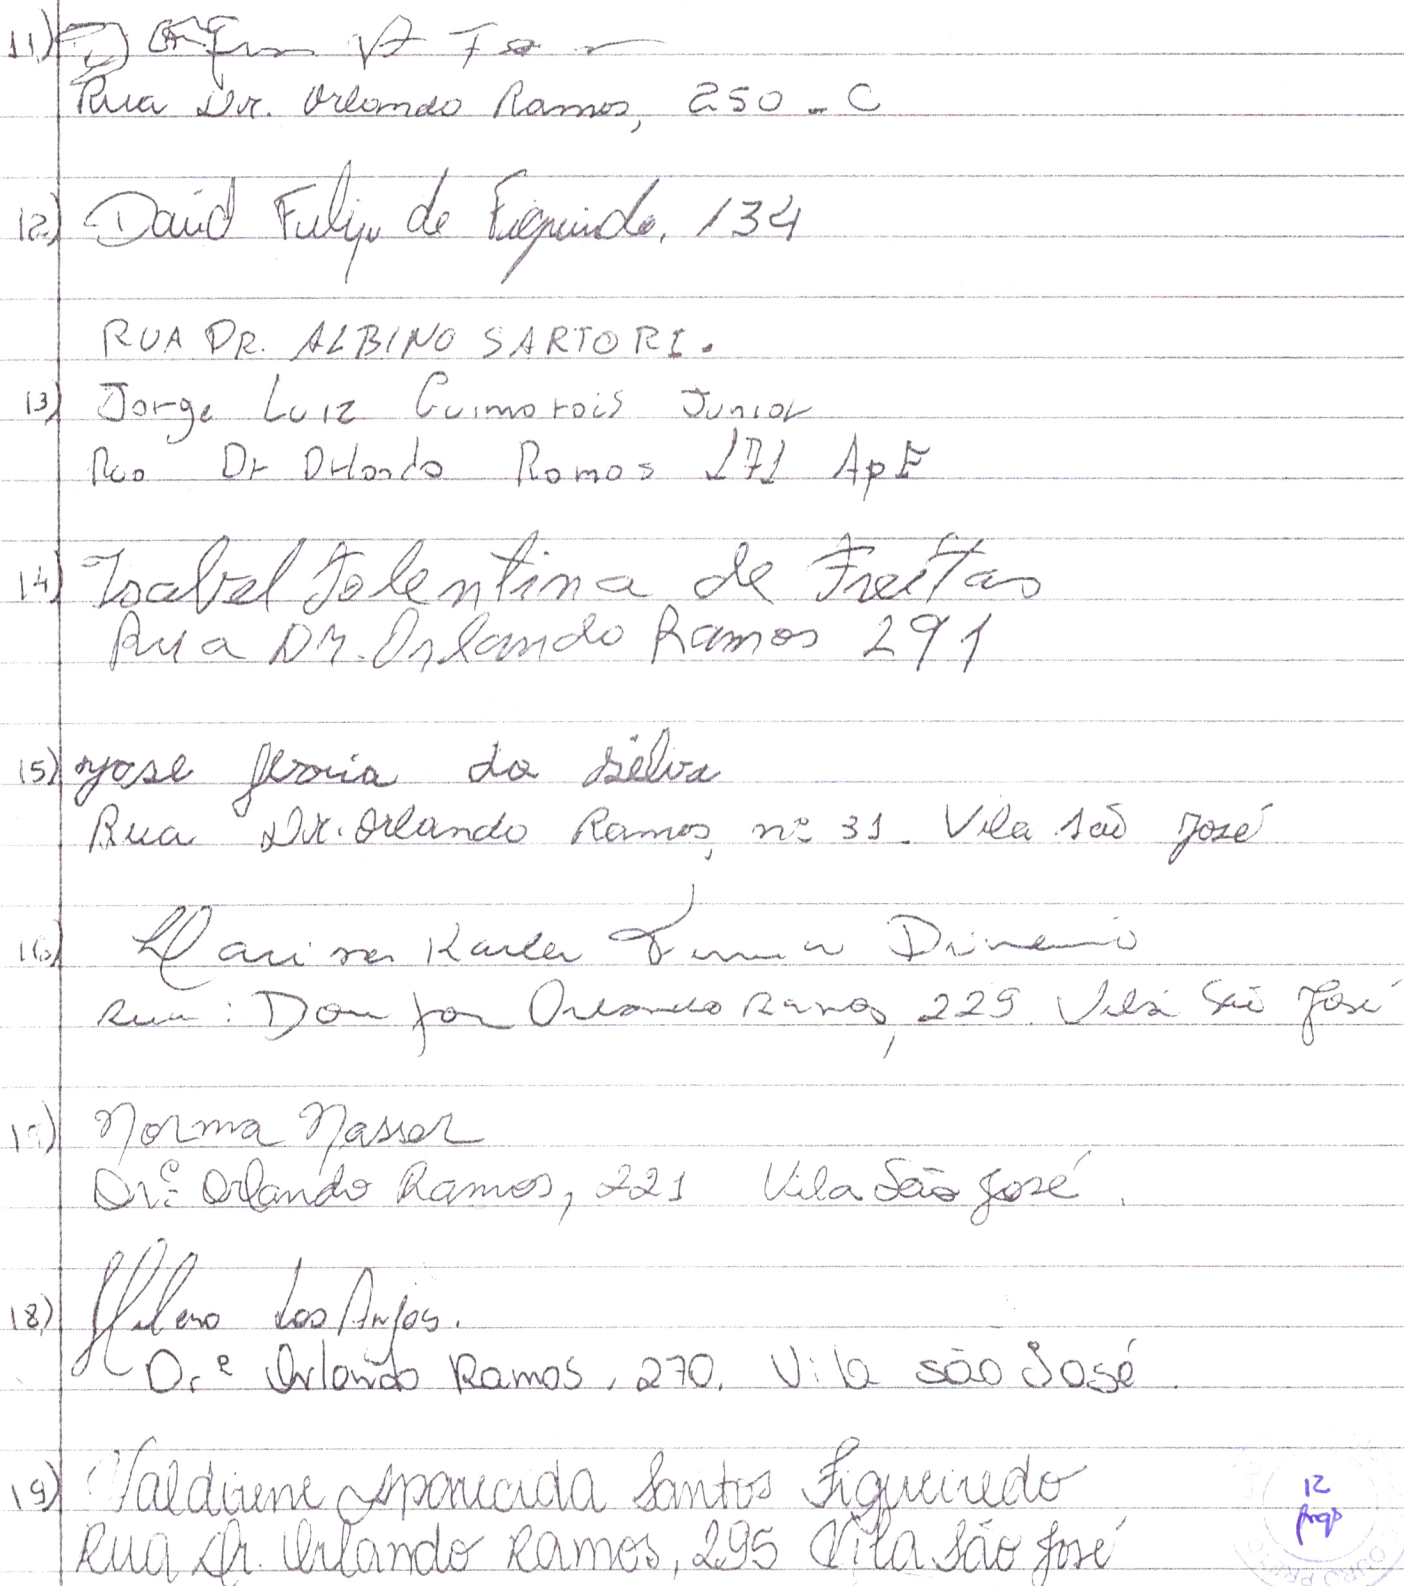 11)
Rua Dr. Orlando Ramos, 250 - C
12) David Felipe de Figueiredo, 134
RUA DR. ALBINO SARTORI.
13) Jorge Luiz Guimarois Junior
Rua Dr Orlando Ramos 171 Ap E
14) Isabel Tolentina de Freitas
Rua Dr. Orlando Ramos 291
15) Jose da Silva
Rua Dr. Orlando Ramos, nº 31. Vila São José
16) Karla
Rua: Orlando Ramos, 229. Vila São José
17) Norma Nasser
Drº Orlando Ramos, 221 Vila São José.
18) dos Anjos.
Dr.º Orlando Ramos, 270. Vila São José.
19) Valdirene Aparecida Santos Figueiredo
Rua Dr. Orlando Ramos, 295 Vila São José
12